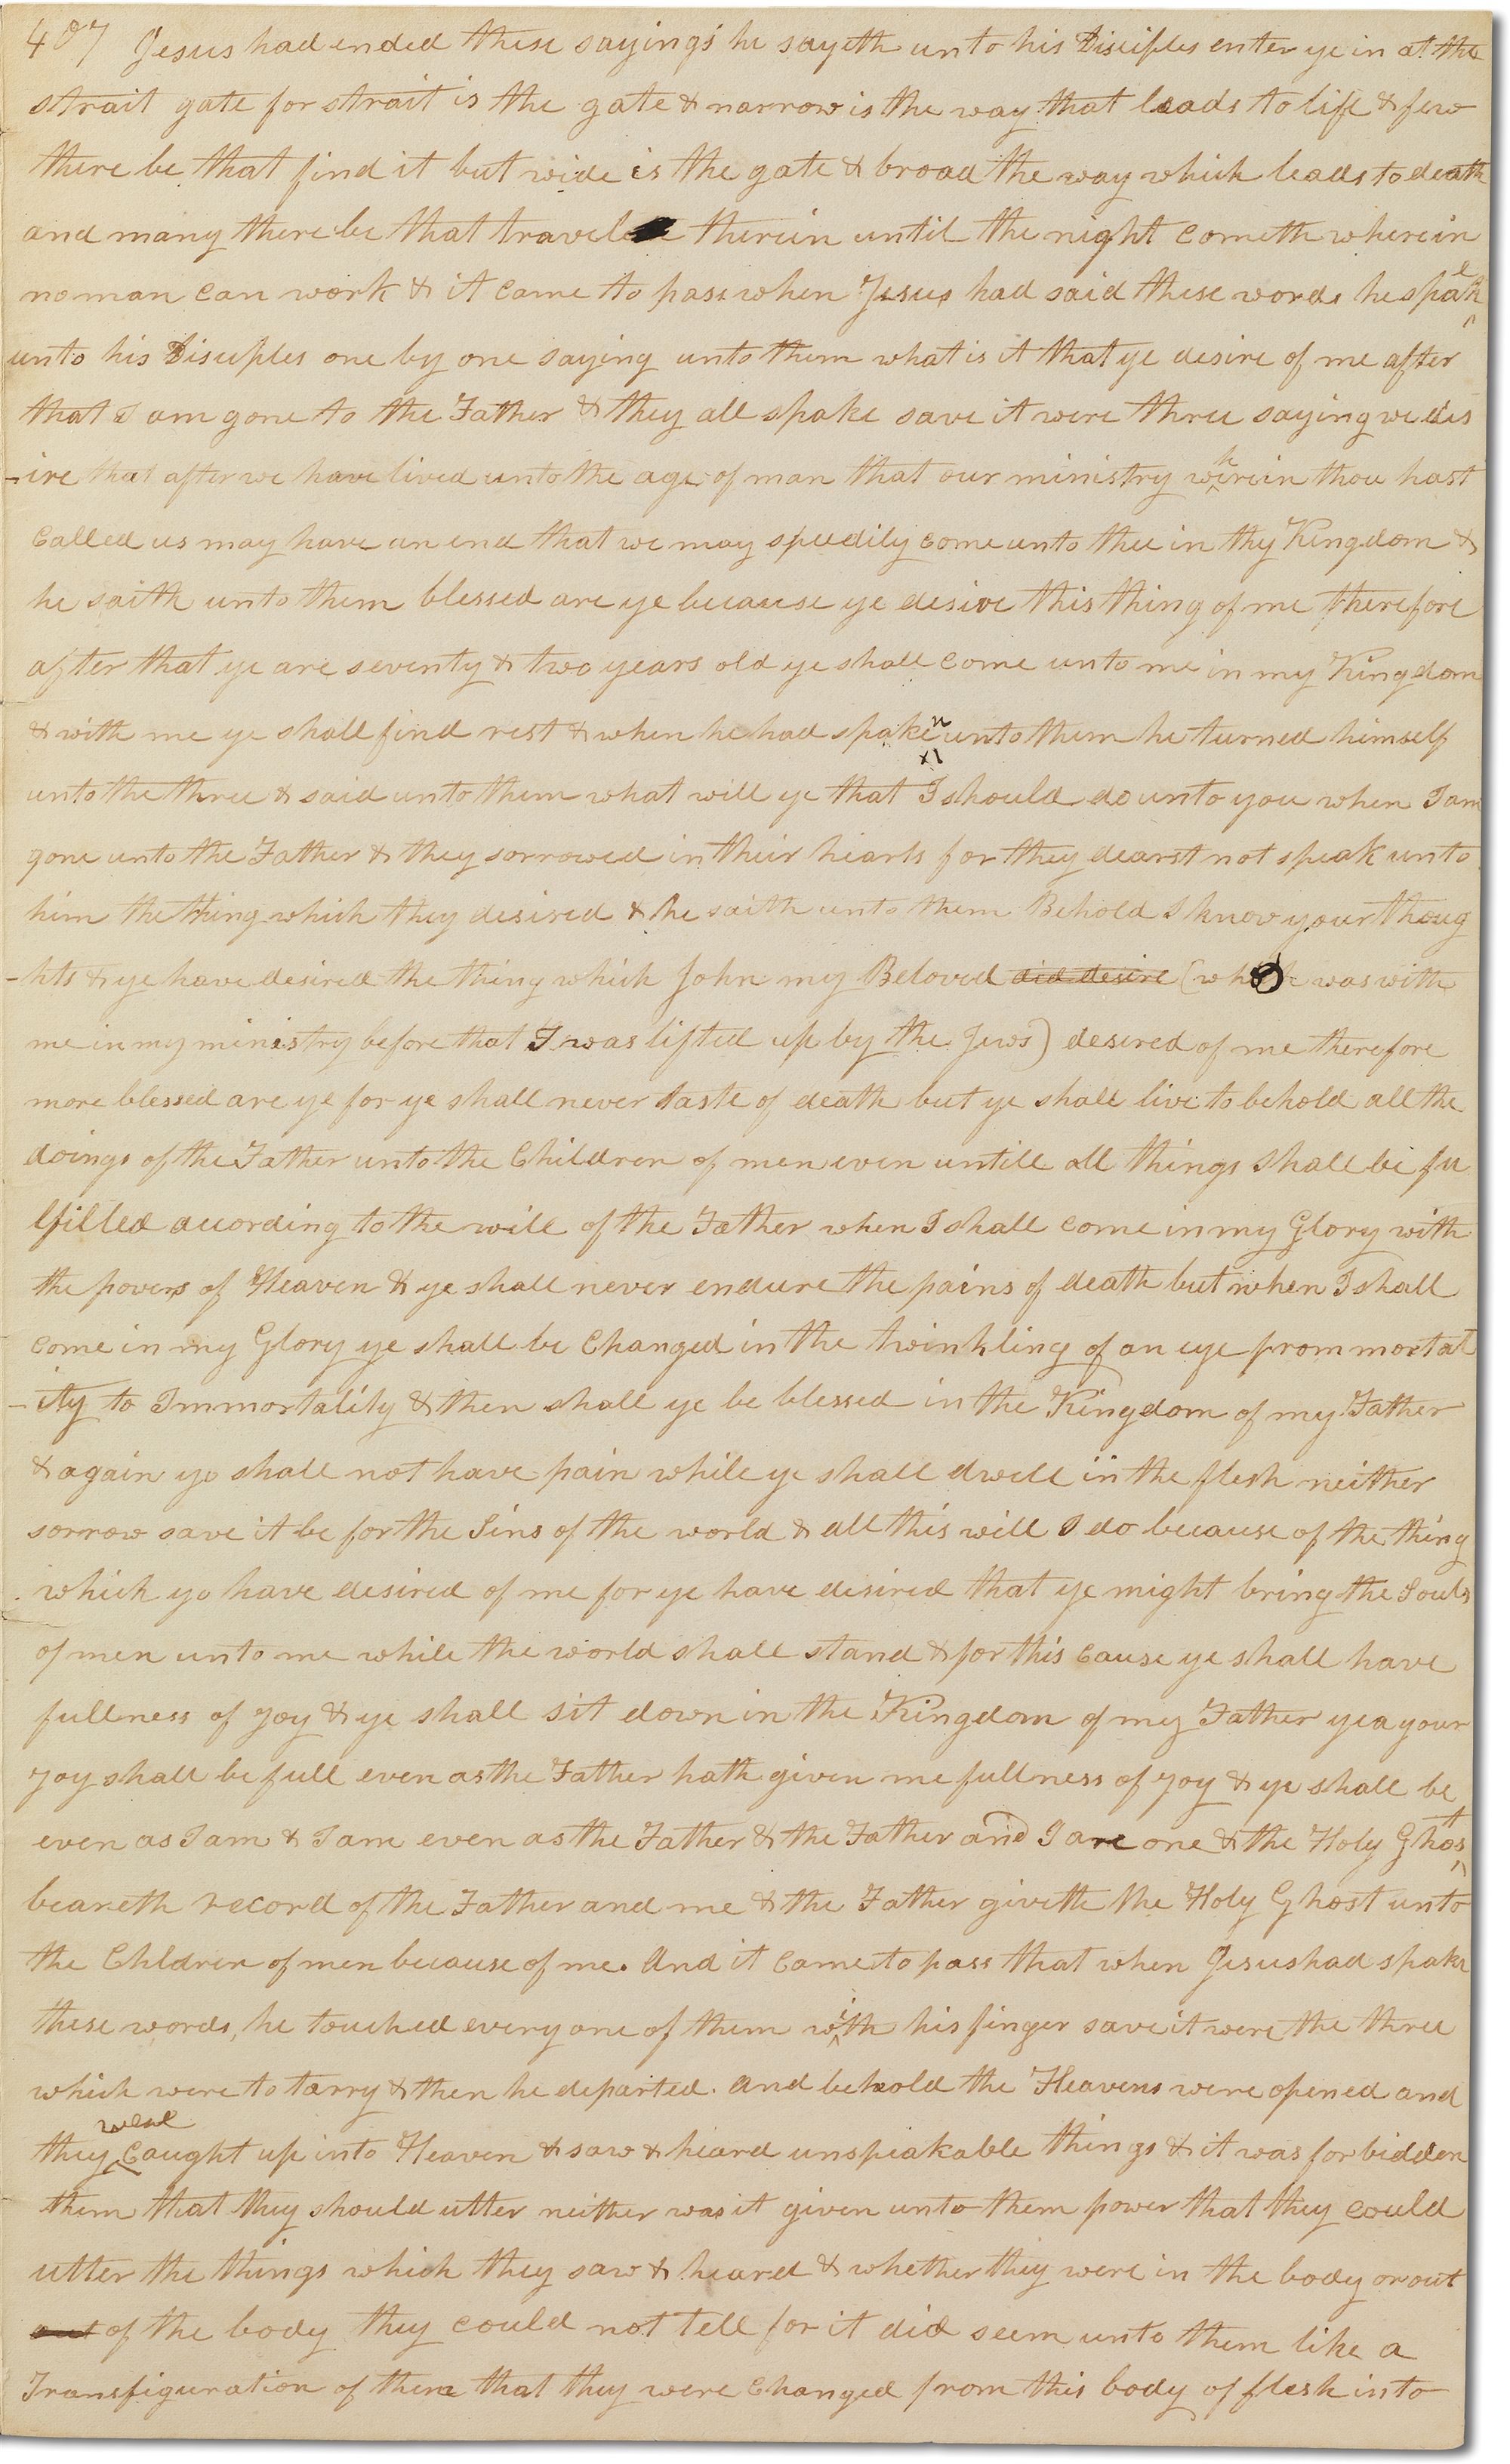 407 Jesus had ended these sayings he sayeth unto his Disciples enter ye in at the
strait gate for strait is the gate & narrow is the way that leads to life & few
there be that find it but wide is the gate & broad the way which leads to death
and many there be that travel therein until the night cometh wherein
no man can work & it came to pass when Jesus had said these words he speak
unto his Disciples one by one saying unto them what is it that ye desire of me after
that I am gone to the Father & they all spake save it were three saying we des
-ire that after we have lived unto the age of man that our ministry wherein thou hast
called us may have an end that we may speedily come unto thee in thy Kingdom &
he saith unto them blessed are ye because ye desire this thing of me therefore
after that ye are seventy & two years old ye shall come unto me in my Kingdom
& with me ye shall find rest & when he had spaken unto them he turned himself
unto the three & said unto them what will ye that I should do unto you when I am
gone unto the Father & they sorrowed in their hearts for they dearst not speak unto
him the thing which they desired & he saith unto them Behold I know your thoug
-hts & ye have desired the thing which John my Beloved did desire (who was with
me in my ministry before that I was lifted up by the Jews) desired of me therefore
more blessed are ye for ye shall never taste of death but ye shall live to behold all the
doings of the Father unto the Children of men even untill all things shall be fu
lfilled according to the will of the Father when I shall come in my Glory with
the powers of Heaven & ye shall never endure the pains of death but when I shall
come in my Glory ye shall be changed in the twinkling of an eye from mortal
-ity to Immortality & then shall ye be blessed in the Kingdom of my Father
& again ye shall not have pain while ye shall dwell in the flesh neither
sorrow save it be for the Sins of the world & all this will I do because of the thing
which ye have desired of me for ye have desired that ye might bring the Souls
of men unto me while the world shall stand & for this cause ye shall have
fullness of joy & ye shall sit down in the Kingdom of my Father yea your
joy shall be full even as the Father hath given me fullness of joy & ye shall be
even as I am & I am even as the Father & the Father and I are one & the Holy Ghost
beareth record of the Father and me & the Father giveth the Holy Ghost unto
the Chldren of men because of me. And it came to pass that when Jesus had spake
these words, he touched every one of them with his finger save it were the three
which were to tarry & then he departed. And behold the Heavens were opened and
they were caught up into Heaven & saw & heard unspeakable things & it was forbidden
them that they should utter neither was it given unto them power that they could
utter the things which they saw & heard & whether they were in the body or out
out of the body they could not tell for it did seem unto them like a
Transfiguration of them that they were changed from this body of flesh into